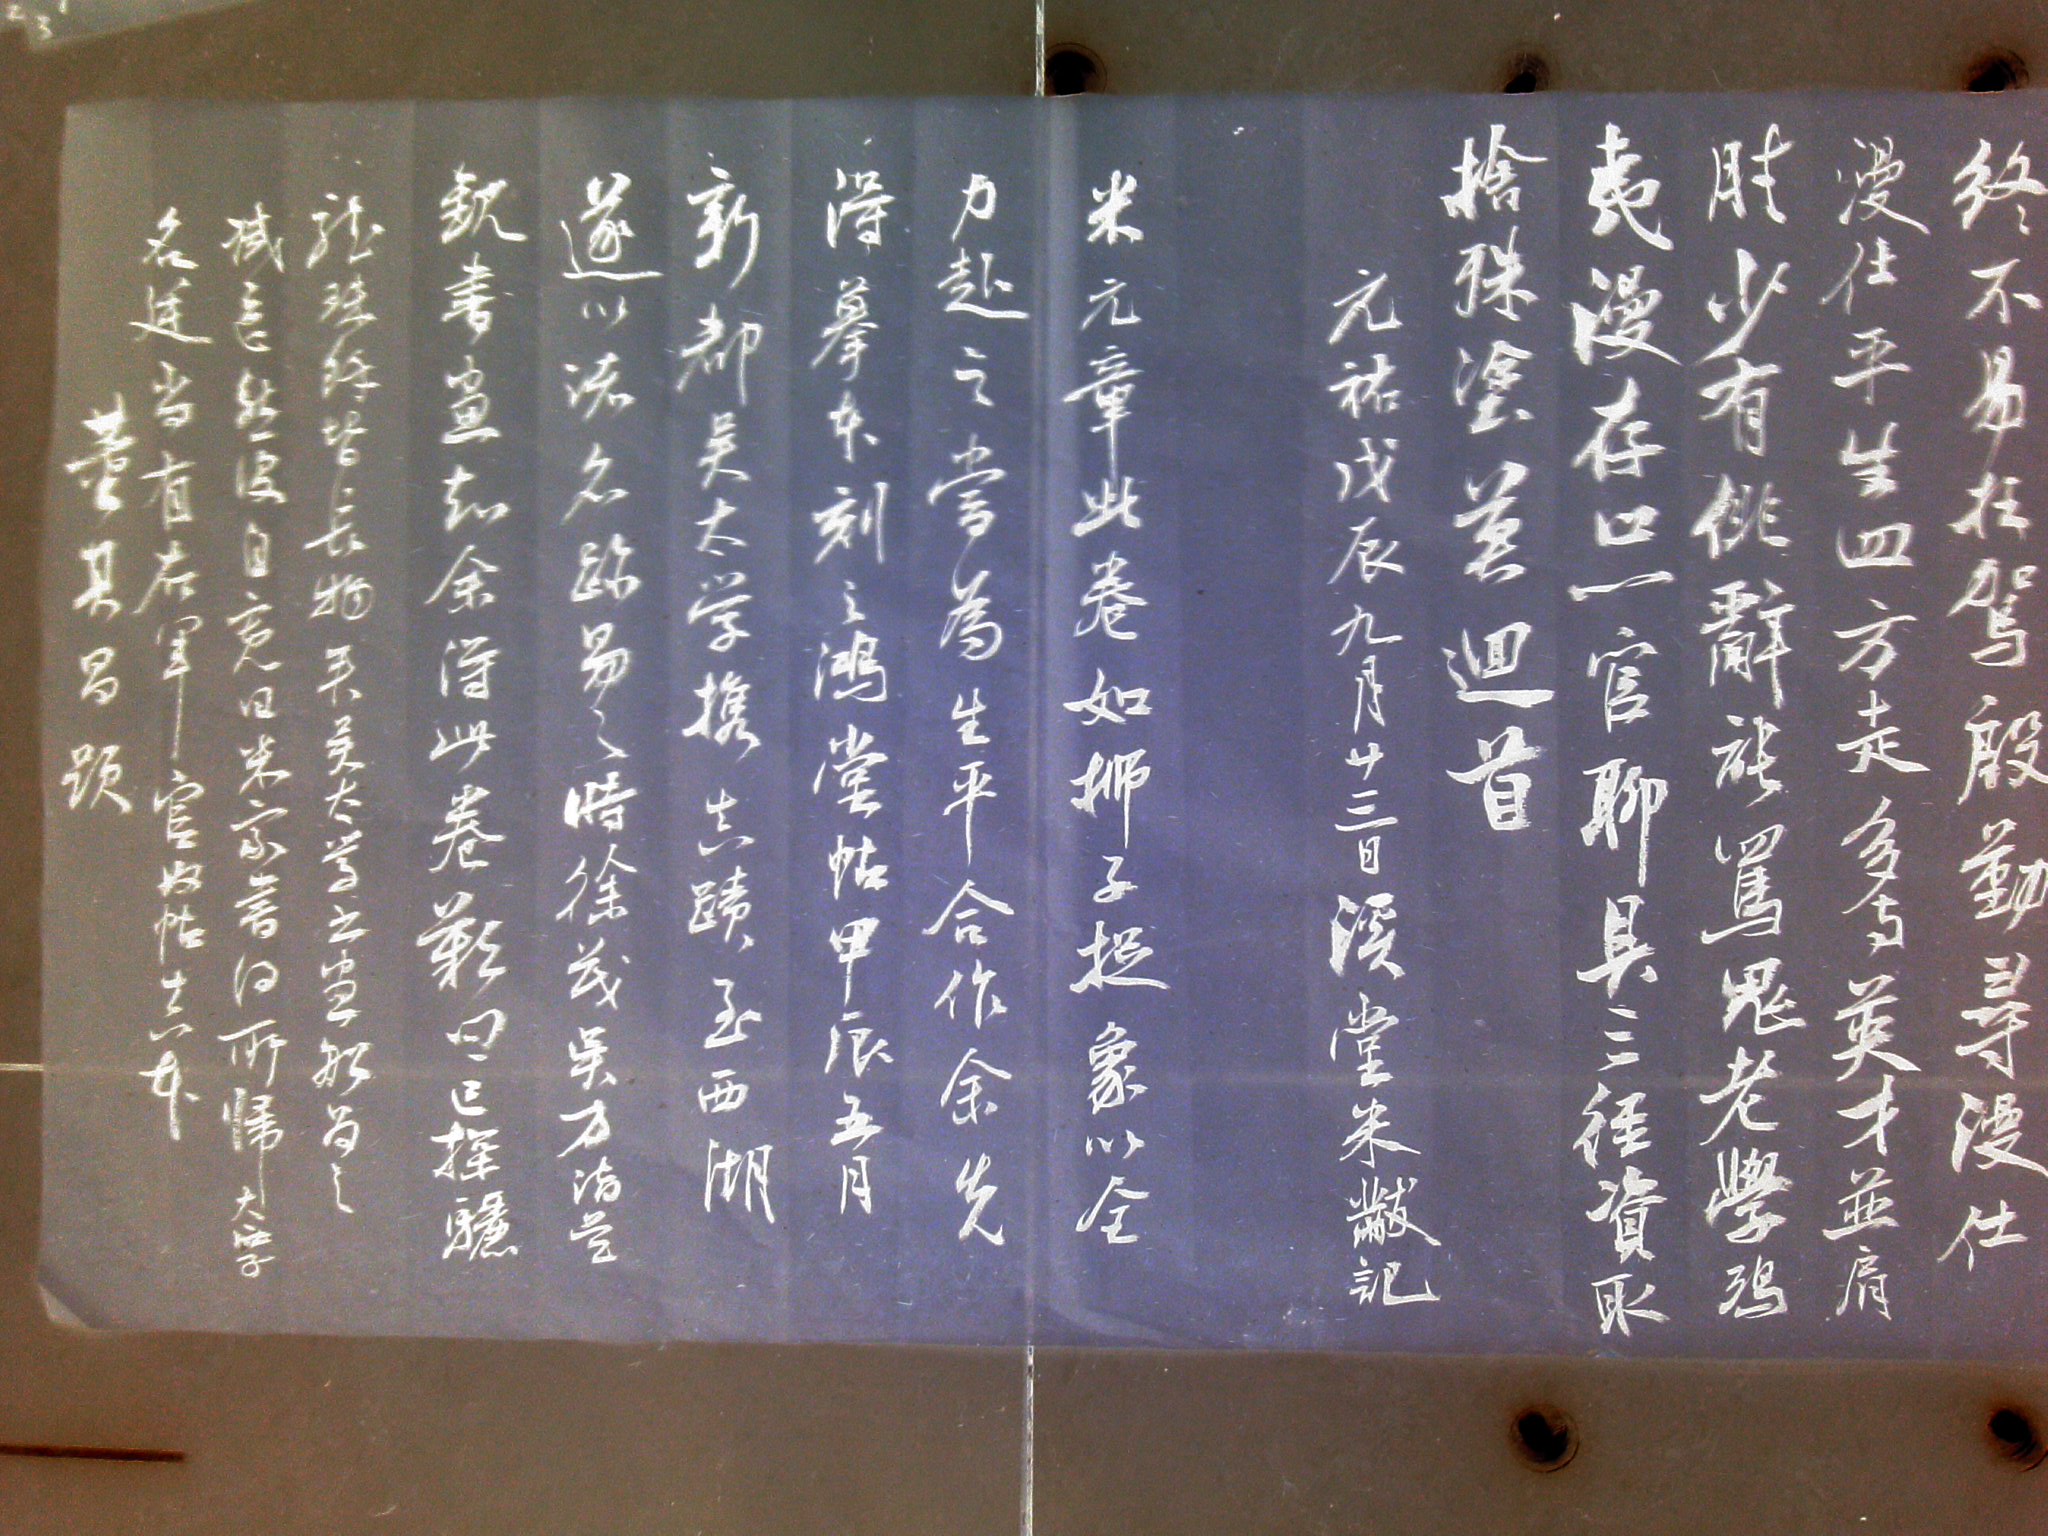 終不易枉駕殷勤尋漫仕
漫仕平生四方走多与英才並肩
肘少有俳辭能罵鬼老學鴟
夷漫存口一官聊具三徑資取
捨殊塗莫迴首
元祐戊辰九月廿三日溪堂米黻記
米元章此卷如獅子捉象以全
力赴之當為生平合作余先
得摹本刻之鴻堂帖甲辰五月
新都吴太学携真蹟至西湖
遂以诸名跡易之時徐茂吴方詣吴
觀書畫知余得此卷歎曰已探驪
龍珠餘皆長物矣吴太學書畫船為之
減色然後自寬曰米家書得所歸太学
名廷尚有右軍官奴帖真本
董其昌題